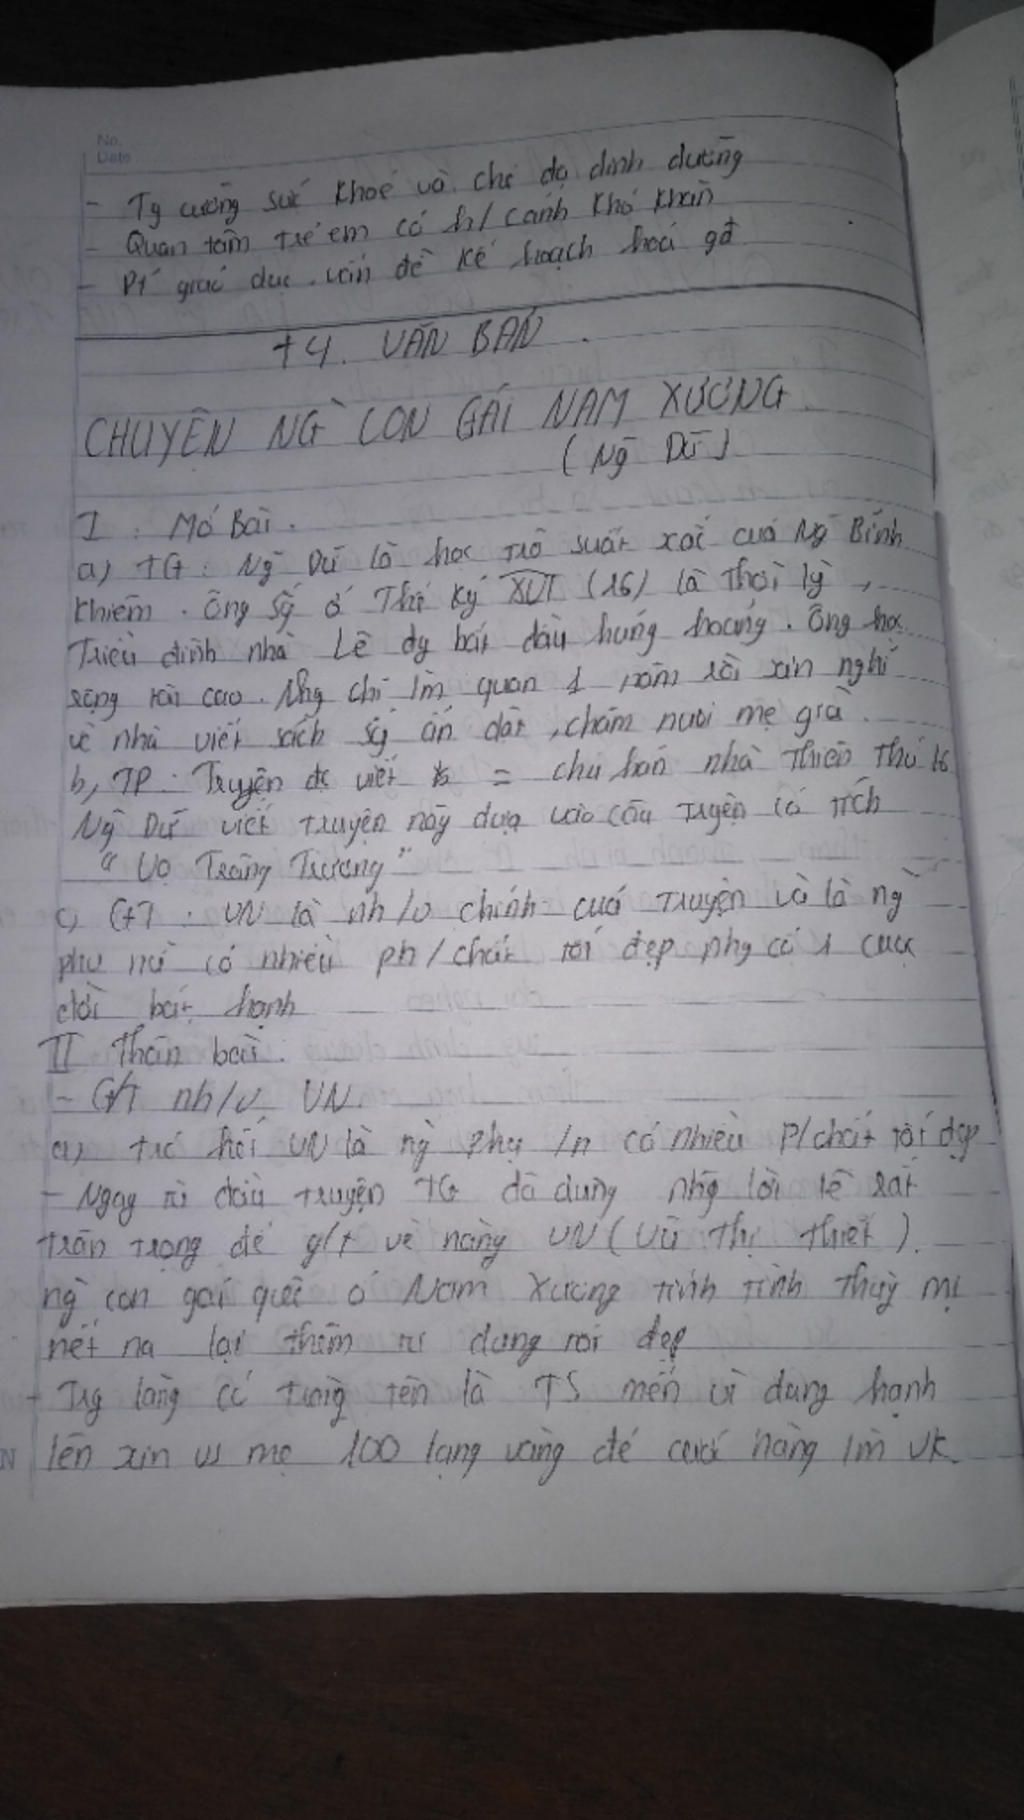 No.
Date
- Tg cường sức khoẻ và chế độ dinh dưỡng
- Quan tâm trẻ em có h/cảnh khó khăn
- Pt giáo dục, vấn đề kế hoạch hoá gđ
t4. VĂN BẢN
CHUYỆN NG̀ CON GÁI NAM XƯƠNG
(Ng Dữ)
I. Mở Bài.
a) TG: Ng Dữ là học trò suất xắc của Ng Bỉnh
Khiêm. Ông sg ở Thế Kỷ XVI (16) là thời kỳ,
Triều đình nhà Lê đg bắt đầu khủng hoảng. Ông học
rộng tài cao. Nhg chỉ lm quan 1 năm rồi xin nghỉ
về nhà viết sách sg ẩn dật, chăm nuôi mẹ già.
b, TP: Truyện đc viết = chữ hán nhà Thiên Thứ 16
Ng Dữ viết truyện này dựa vào câu truyện cổ tích
"Vợ Tràng Trương"
c) GT: VN là nh/v chính của truyện và là ng̀
phụ nữ có nhiều ph/chất tốt đẹp nhg có 1 cuộc
đời bất hạnh
II Thân bài:
- G/T nh/v VN.
a) trc hết VN là ng̀ phụ /n có nhiều p/chất tốt đẹp
- Ngay từ đầu truyện TG đã dùng nhg lời lẽ rất
trân trọng để g/t về nàng VN (Vũ Thị Thiết).
ng̀ con gái quê ở Nam Xương tính tình thuỳ mị
nết na lại thêm tư dung tốt đẹp
- Trg làng có tràng tên là TS mến vì dung hạnh
lên xin vs mẹ 100 lạng vàng để cưới nàng lm vk